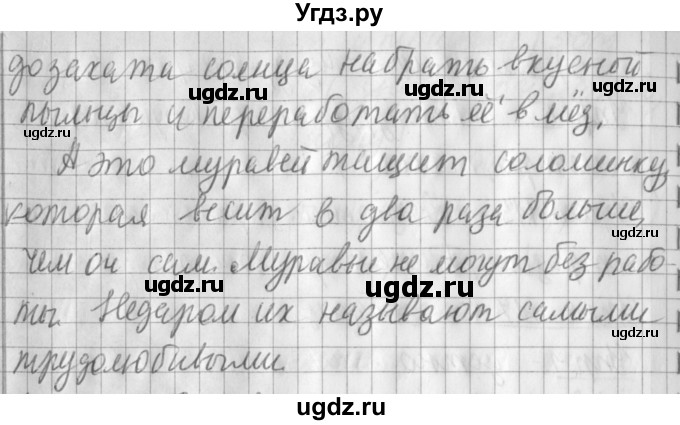 Угдз.ру
до захата солнца набрать вкусный
пыльцы и переработать её в мёд.
А это муравей тащит соломинку,
которая весит в два раза больше,
чем он сам. Муравьи не могут без рабо-
ты. Недаром их называют самыми
трудолюбивыми.
ugdz.ru
ugdz.ru
ugdz.ru
ugdz.ru
ugdz.ru
ugdz.ru
ugdz.ru
ugdz.ru
ugdz.ru
ugdz.ru
ugdz.ru
ugdz.ru
ugdz.ru